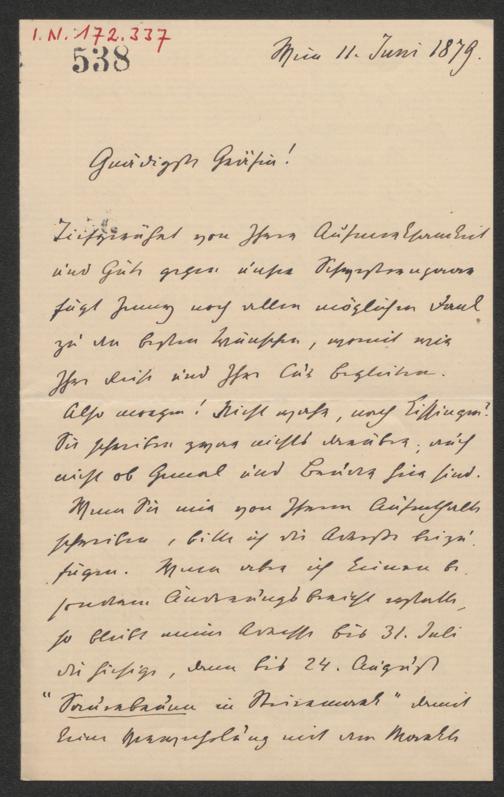 I.N. 172.337
538
Wien 11. Juni 1879.
Gnädigste Gräfin!
Tiefgerührt von Ihrer Aufmerksamkeit
und Güte gegen unser Schwesternpaar
fügt Jenny noch allen möglichen Dank
zu den besten Wünschen, womit wir
Ihre Reise und Ihre Cur begleiten.
Also morgen! Nicht wahr, nach Kissingen?
Sie schreiben zwar nichts darüber, auch
nicht ob Gemal und Bruder hier sind.
Wenn Sie mir von Ihrem Aufenthalte
schreiben, bitte ich die Adresse beizu
fügen. Wenn aber ich keinen be
sonderen Änderungsbericht erstatte,
so bleibt meine Adresse bis 31. Juli
die hiesige, dann bis 24. August
"Sauerbrunn in Steiermark" damit
keine Verwechslung mit dem